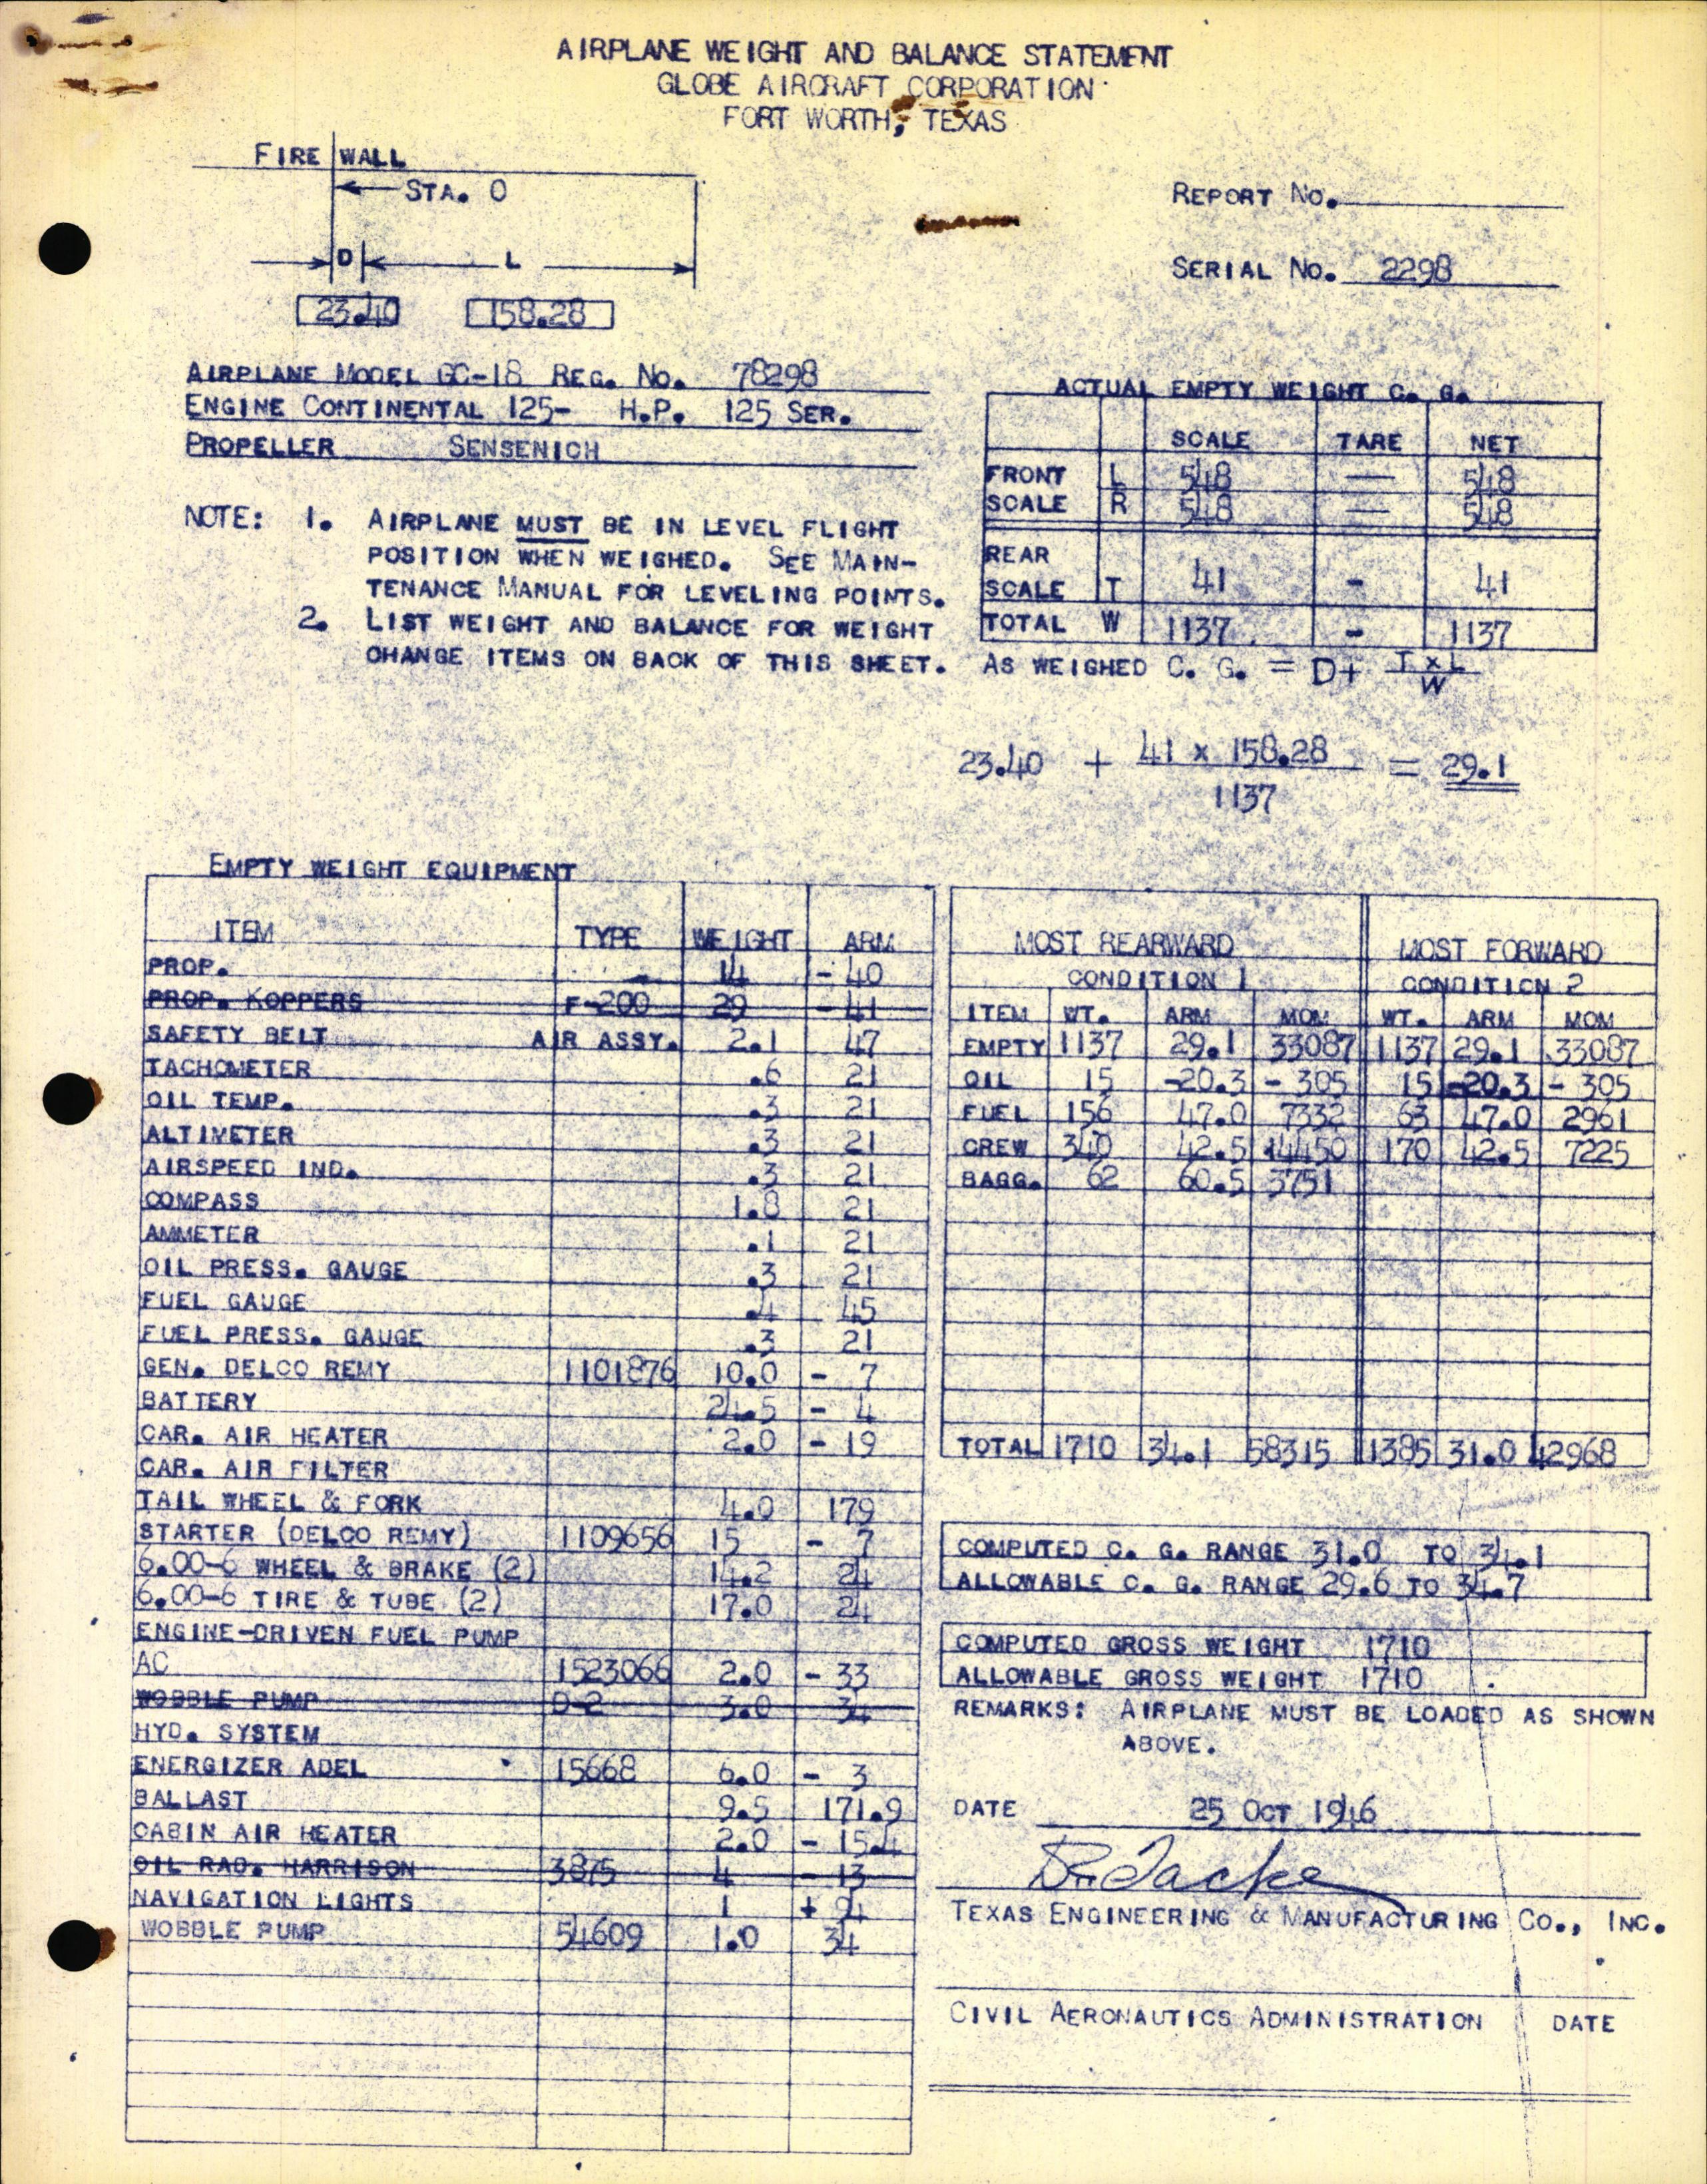 AIRPLANE WEIGHT AND BALANCE STATEMENT
GLOBE AIRCRAFT CORPORATION
FORT WORTH, TEXAS
FIRE WALL
STA. 0
D L
23.40 158.28
REPORT NO.
SERIAL NO. 2298
AIRPLANE MODEL GC-1B REG. NO. 78298
ENGINE CONTINENTAL 125- H.P. 125 SER.
PROPELLER SENSENICH
NOTE: 1. AIRPLANE MUST BE IN LEVEL FLIGHT
POSITION WHEN WEIGHED. SEE MAIN-
TENANCE MANUAL FOR LEVELING POINTS.
2. LIST WEIGHT AND BALANCE FOR WEIGHT
CHANGE ITEMS ON BACK OF THIS SHEET.
ACTUAL EMPTY WEIGHT C. G.
SCALE TARE NET
FRONT L 548 — 548
SCALE R 548 — 548
REAR
SCALE T 41 - 41
TOTAL W 1137 - 1137
AS WEIGHED C. G. = D+ T x L
W
23.40 + 41 x 158.28 = 29.1
1137
EMPTY WEIGHT EQUIPMENT
ITEM TYPE WEIGHT ARM
PROP. 14 - 40
PROP. KOPPERS F-200 29 - 41
SAFETY BELT AIR ASSY. 2.1 47
TACHOMETER .6 21
OIL TEMP. .3 21
ALTIMETER .3 21
AIRSPEED IND. .3 21
COMPASS 1.8 21
AMMETER .1 21
OIL PRESS. GAUGE .3 21
FUEL GAUGE .4 45
FUEL PRESS. GAUGE .3 21
GEN. DELCO REMY 1101876 10.0 - 7
BATTERY 24.5 - 4
CAR. AIR HEATER 2.0 - 19
CAR. AIR FILTER
TAIL WHEEL & FORK 4.0 179
STARTER (DELCO REMY) 1109656 15 - 7
6.00-6 WHEEL & BRAKE (2) 14.2 24
6.00-6 TIRE & TUBE (2) 17.0 24
ENGINE-DRIVEN FUEL PUMP
AC 1523066 2.0 - 33
WOBBLE PUMP D-2 3.0 34
HYD. SYSTEM
ENERGIZER ADEL 15668 6.0 - 3
BALLAST 9.5 171.9
CABIN AIR HEATER 2.0 - 15.4
OIL RAD. HARRISON 3875 4 - 13
NAVIGATION LIGHTS 1 + 94
WOBBLE PUMP 54609 1.0 34
MOST REARWARD MOST FORWARD
CONDITION 1 CONDITION 2
ITEM WT. ARM MOM WT. ARM MOM
EMPTY 1137 29.1 33087 1137 29.1 33087
OIL 15 -20.3 - 305 15 -20.3 - 305
FUEL 156 47.0 7332 63 47.0 2961
CREW 340 42.5 14450 170 42.5 7225
BAGG. 62 60.5 3751
TOTAL 1710 34.1 58315 1385 31.0 42968
COMPUTED C. G. RANGE 31.0 TO 34.1
ALLOWABLE C. G. RANGE 29.6 TO 34.7
COMPUTED GROSS WEIGHT 1710
ALLOWABLE GROSS WEIGHT 1710
REMARKS: AIRPLANE MUST BE LOADED AS SHOWN
ABOVE.
DATE 25 OCT 1946
TEXAS ENGINEERING & MANUFACTURING CO., INC.
CIVIL AERONAUTICS ADMINISTRATION DATE